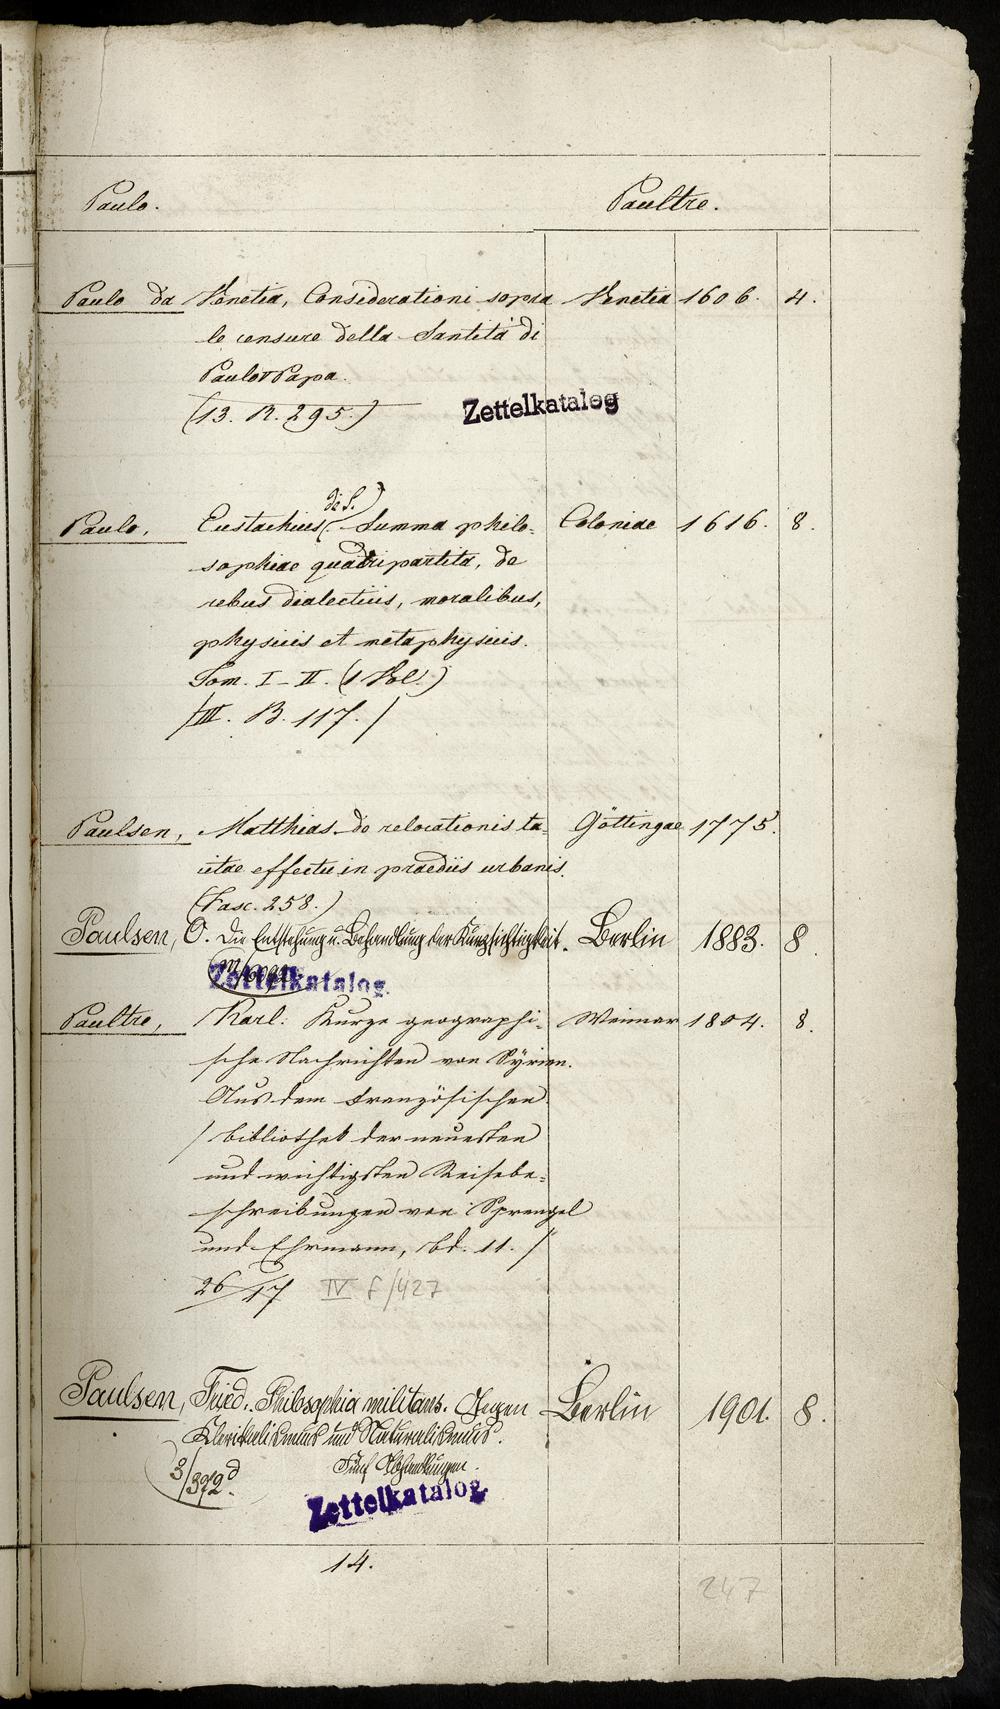 Paulo. Paultre.
Paulo da Venetia, Considerationi sopra Venetia 1606. 4.
le censure della Santità di
Paulo V Papa.
(13. R. 295.)
Zettelkatalog
di S.
Paulo, Eustachius ( ) Summa philo- Coloniae 1616. 8.
sophiae quadripartita, de
rebus dialecticis, moralibus,
physicis et metaphysicis.
Tom. I–II. (1 Vol.)
/III. B. 117./
Paulsen, Matthias de relocationis ta- Göttingae 1775.
citae effectu in praediis urbanis.
(Fasc. 258.)
Paulsen, O. Die Entstehung u. Behandlung der Kurzsichtigkeit. Berlin 1883. 8
Zettelkatalog.
Paultre, Karl. Kurze geographi- Weimar 1804. 8.
sche Nachrichten von Syrien.
Aus dem Französischen.
/Bibliothek der neuesten
und wichtigsten Reisebe-
schreibungen von Sprengel
und Ehrmann, Bd. 11./
26/17 IV f/427
Paulsen, Fried. Philosophia militans. Gegen Berlin 1901. 8.
Klerikalismus und Naturalismus.
Fünf Abhandlungen.
3/372d.
Zettelkatalog.
14.
247